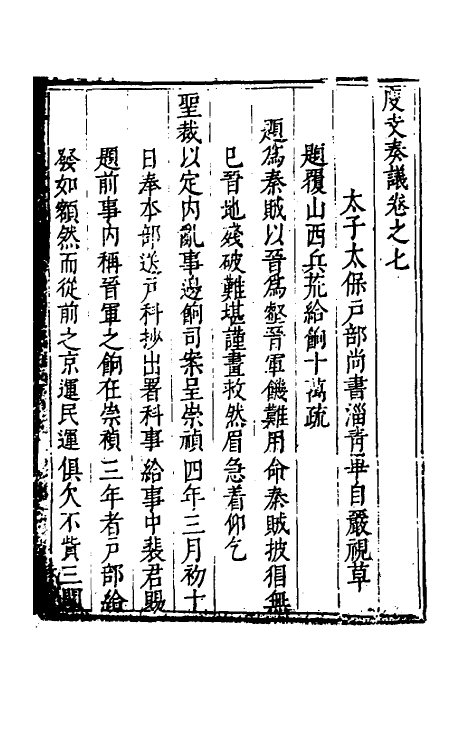 度支奏議卷之七
太子太保戶部尚書淄青畢自嚴視草
題覆山西兵荒給餉十萬疏
題爲秦賊以晉爲壑晉軍饑難用命秦賊披猖無
已晉地殘破難堪謹畫救然眉急着仰乞
聖裁以定内亂事邊餉司案呈崇禎四年三月初十
日奉本部送戶科抄出署科事給事中裴君賜
題前事内稱晉軍之餉在崇禎三年者戶部給
發如額然而從前之京運民運俱欠不貲三關